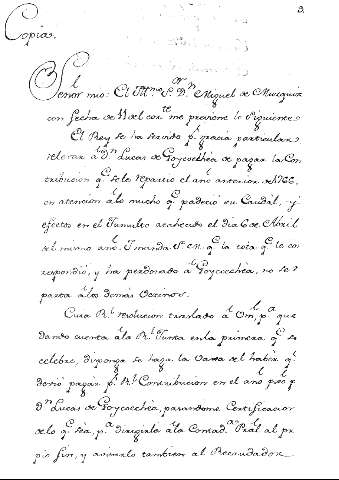 3.
Copia.
Señor mio: El Yll.mo S.or D.n Miguel de Muzquiz
con fecha de 11 del cor.te me previene lo siguiente
El Rey se ha servido p.r gracia particular
relevar à D.n Lucas de Goycochéa de pagar la Con
tribucion q.e se le repartio el año anterior de 1766,
en atencion àlo mucho q.e padeciò su Caudal, y
efectos en el Tumulto acahecido el dia 6 de Abril
del mismo año. Y manda S. M. q.e la cota q.e le co
rrespondió, y ha perdonado à Goycochéa, no se re
parta àlos demàs Vecinos.
Cuia R.l resolucion traslado à Vm, p.a que
dando cuenta àla R.l Junta en la primera q.e se
celebre, disponga se haga la Data del haber q.e
debió pagar p.r R.l Contribucion en el año pas.do
D.n Lucas de Goycochéa, pasandome Certificacion
de lo q.e sea, p.a dirigirla àla Contad.a Pral al pro
pio fin, y avisarlo tambien al Recaudador